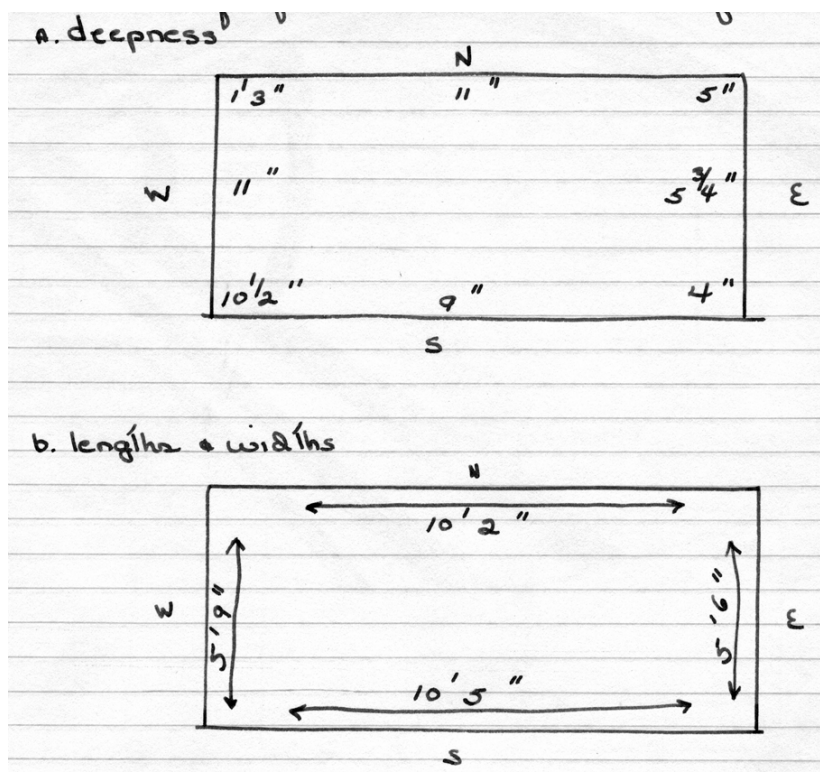 a. deepness
N
1'3" 11" 5"
W 11" 5 3/4" E
10 1/2" 9" 4"
S
b. lengths & widths
N
10' 2"
W 5'9" 5'6" E
10' 5"
S